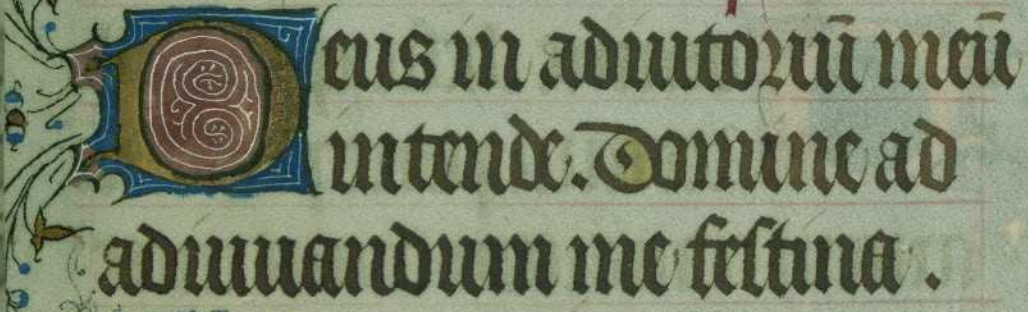 Deus in adiutoriū meū
intende. Domine ad
adiuuandum me festina.